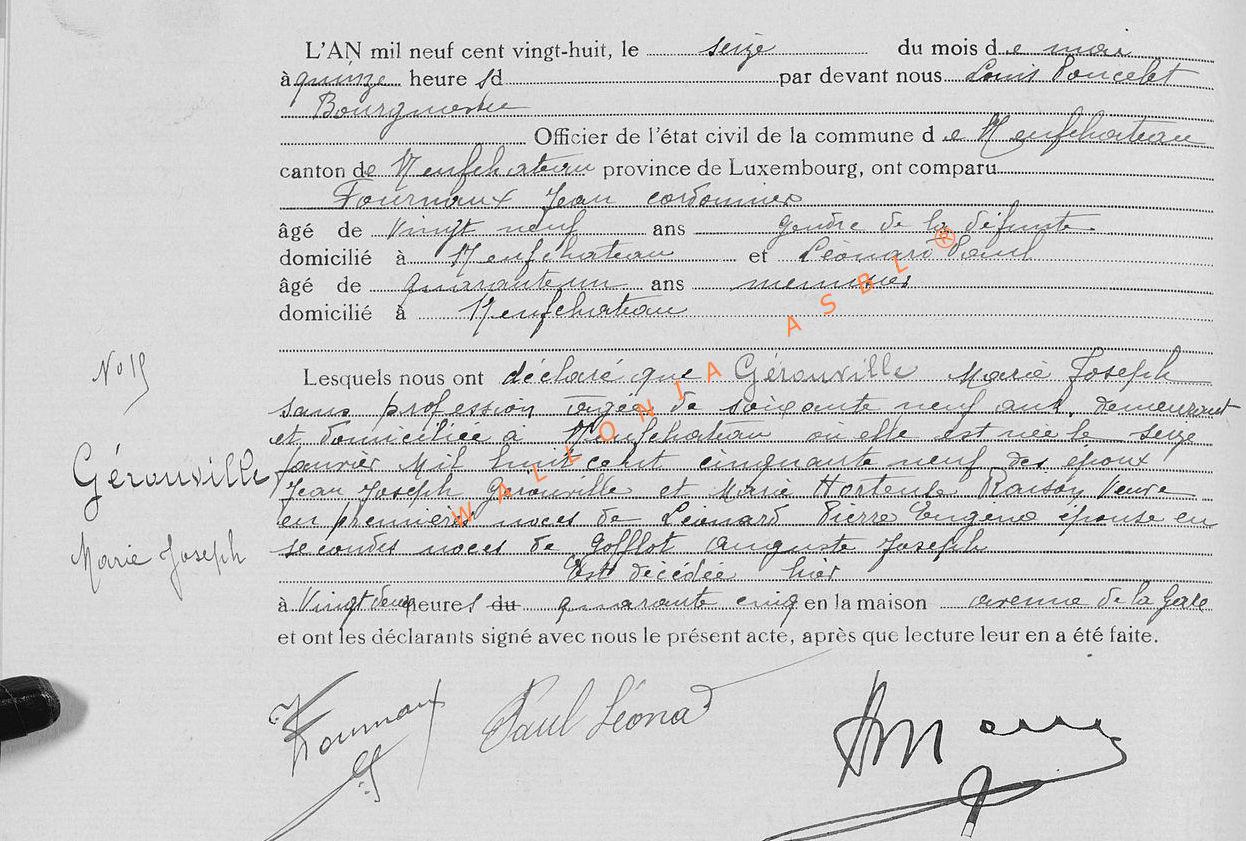 L'AN mil neuf cent vingt-huit, le seize du mois de mai
à quinze heures par devant nous Louis Poncelet
Bourgmestre
Officier de l'état civil de la commune de Neufchateau
canton de Neufchateau province de Luxembourg, ont comparu
Fournaux Jean cordonnier
âgé de Vingt neuf ans gendre de la défunte
domicilié à Neufchateau et Léonard Paul
âgé de quarante un ans menuisier
domicilié à Neufchateau
No 19
Lesquels nous ont déclaré que Gérouville Marie Joseph
sans profession agée de soixante neuf ans, demeurant
et domiciliée à Neufchateau où elle est née le seize
Gérouville
Janvier Mil huit cent cinquante neuf des époux
Jean Joseph Gérouville et Marie Hortense Raison Veuve
en premières noces de Léonard Pierre Eugène épouse en
Marie Joseph
secondes noces de Gofflot Auguste Joseph
Est décédée hier
à Vingt deux heures du quarante cinq en la maison avenue de la Gare
et ont les déclarants signé avec nous le présent acte, après que lecture leur en a été faite.
Fournaux Paul Léonard
WALLONIA ASBL ®